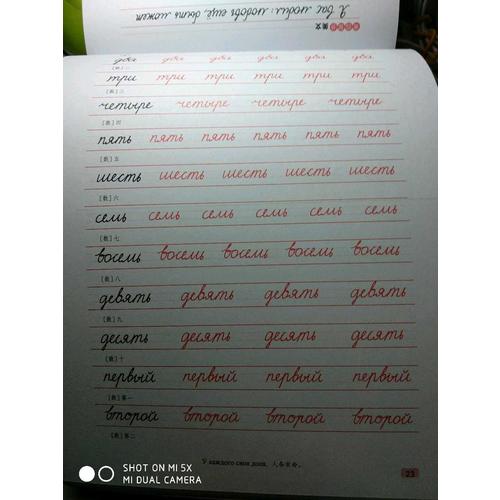 Я вас любил: любовь ещё, быть может
美文
два два два два два два
[数]二
три три три три три три
[数]三
четыре четыре четыре четыре
[数]四
пять пять пять пять пять пять
[数]五
шесть шесть шесть шесть шесть
[数]六
семь семь семь семь семь семь
[数]七
восемь восемь восемь восемь восемь
[数]八
девять девять девять девять
[数]九
десять десять десять десять
[数]十
первый первый первый первый
[数]第一
второй второй второй второй
[数]第二
У каждого своя доля. 人各有命。
23
SHOT ON MI 5X
MI DUAL CAMERA